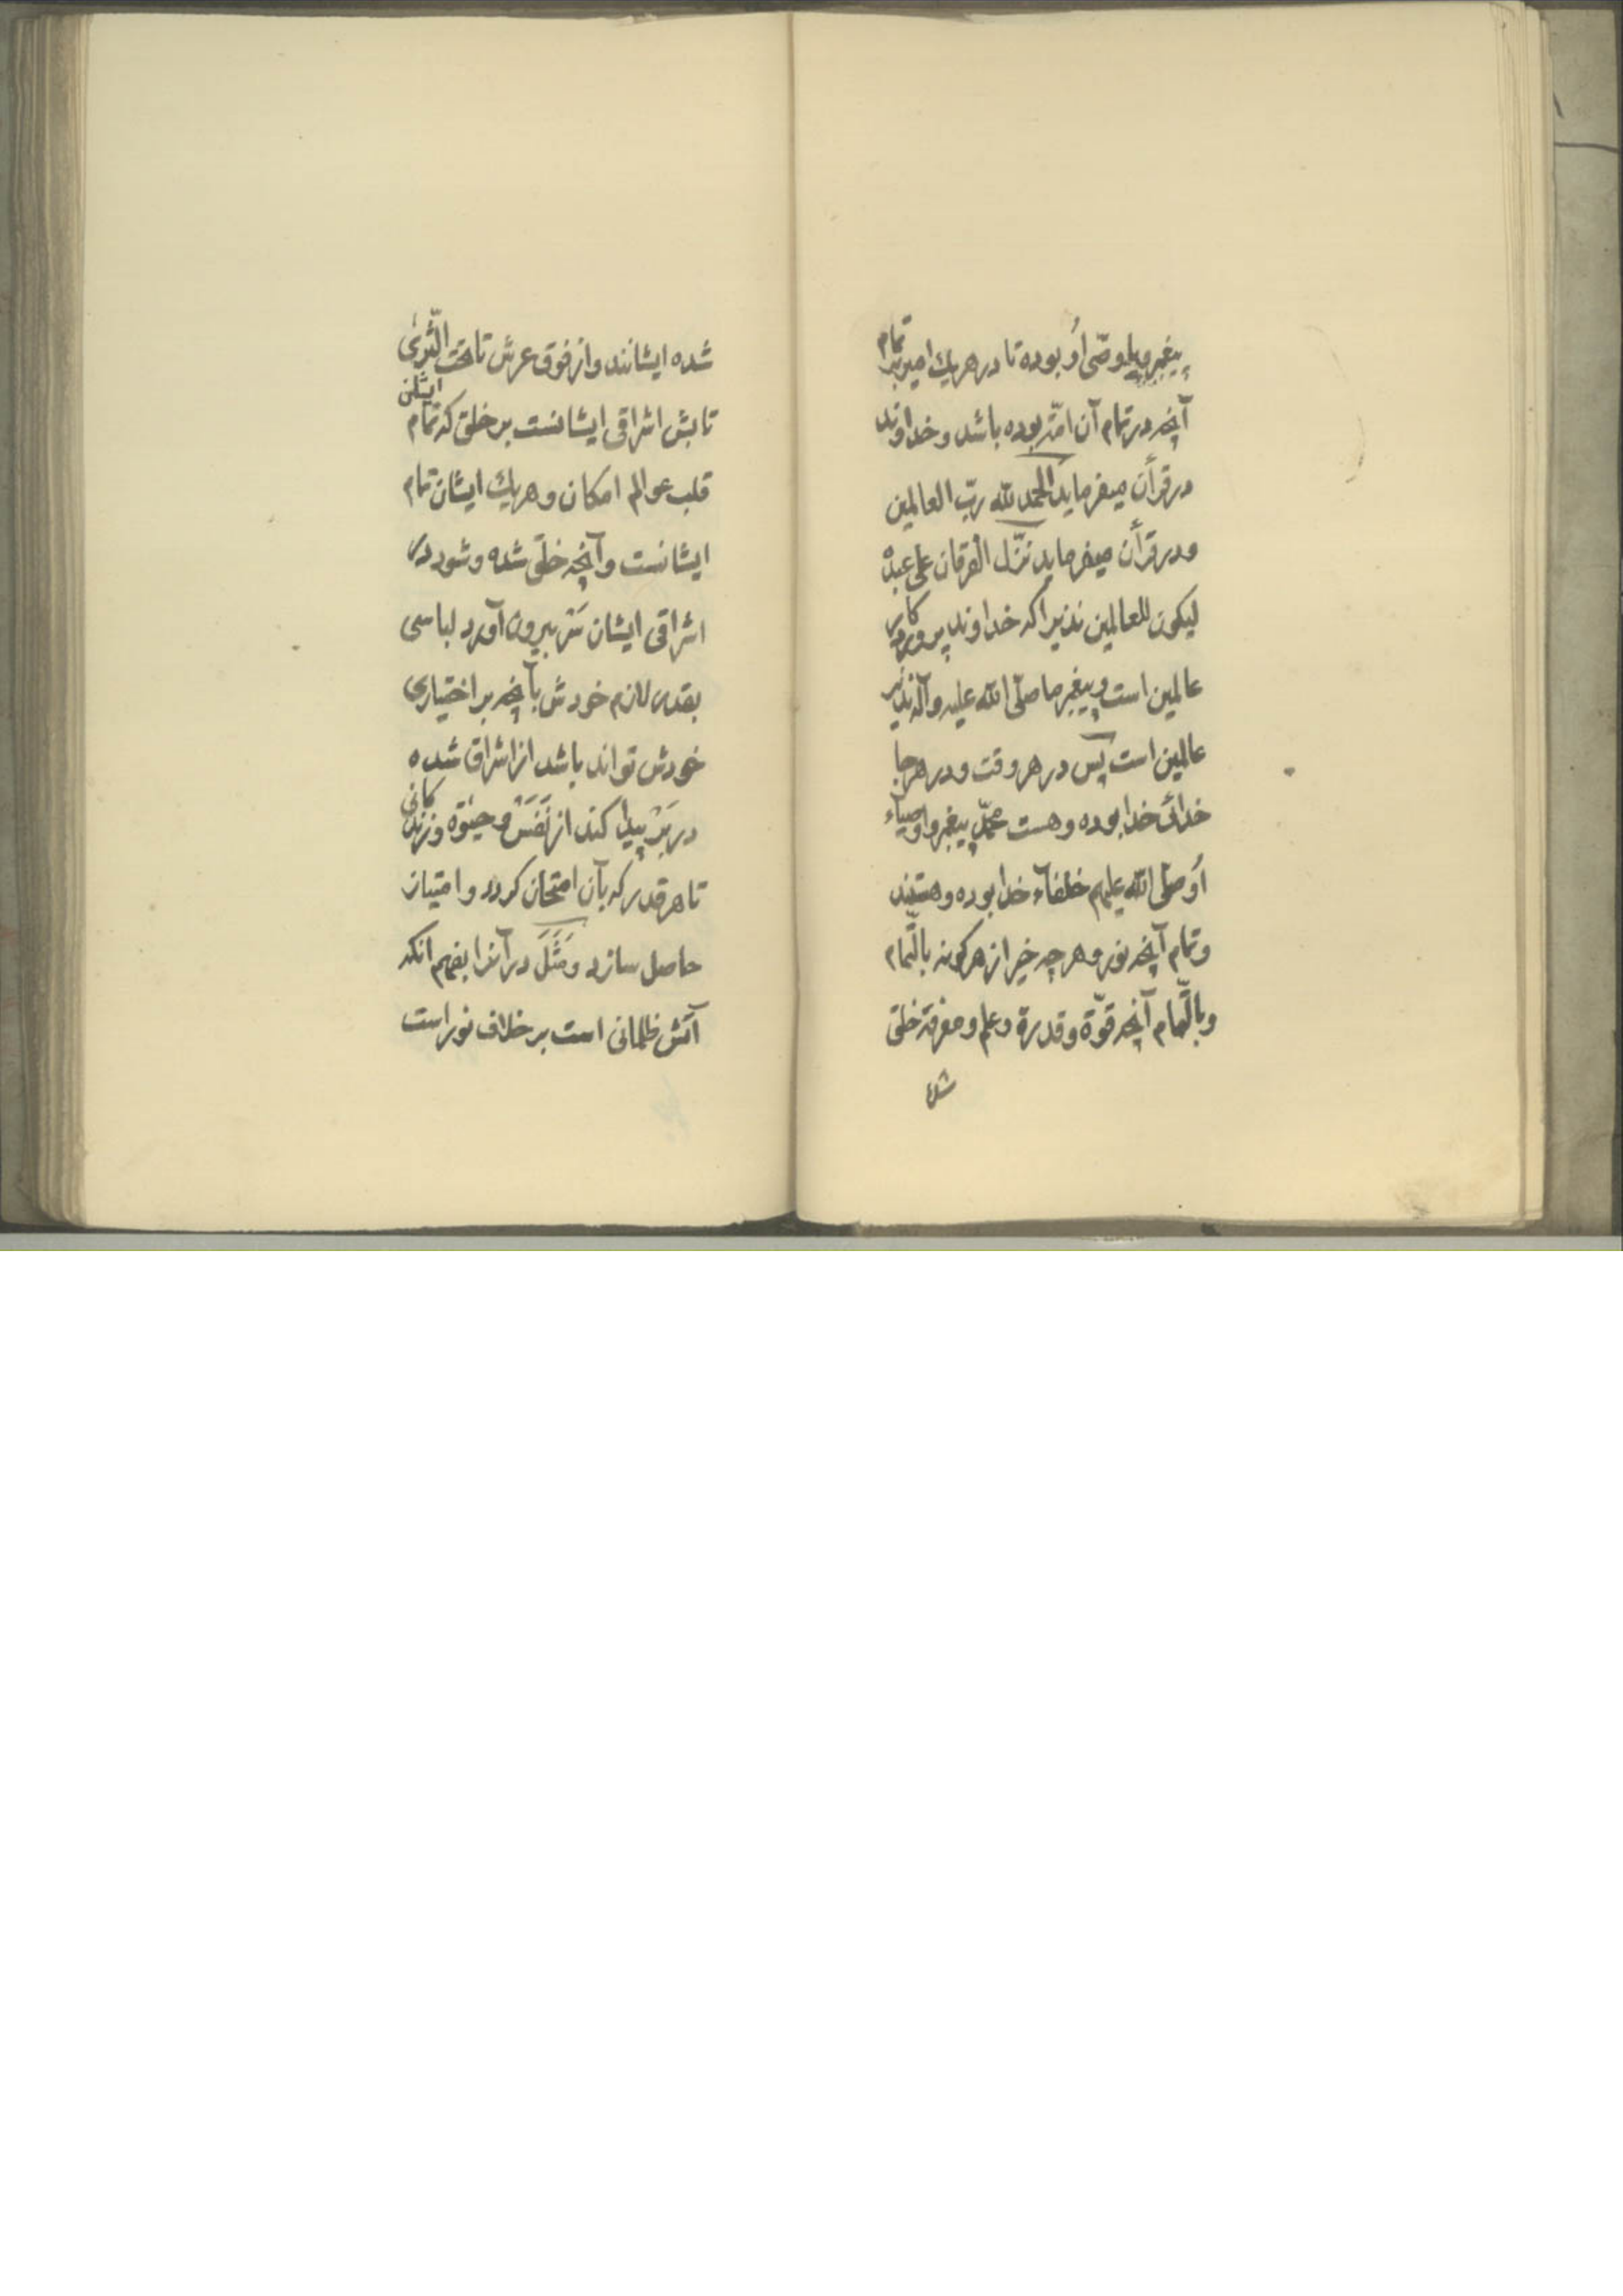 پیغمبر و یا وصّی اُو بوده تا در هریك امیر بر تمام
آنچه در تمام آن امّة بوده باشد و خداوند
در قرآن میفرماید الحمد لله ربّ العالمین
و در قرآن میفرماید نزّل الفرقان علی عبده
لیکون للعالمین نذیرا که خداوند پروردکار
عالمین است و پیغمبر ما صلّی الله علیه و آله نذیر
عالمین است پس در هر وقت و در هر جا
خدائی خدا بوده و هست محمّد پیغمبر و اوصیاء
اُو صلّی الله علیهم خلفآء خدا بوده و هستند
و تمام آنچه نور و هر چه خیر از هر کونه بالتّمام
و بالتّمام آنچه قوّة و قدرة و علم و معرفة خلق
شده
شده ایشانند و از فوق عرش تا تحت الثّری
تابش اشراقی ایشانست بر خلق که تمام ایشان
قلب عوالم امکان و هریك ایشان تمام
ایشانست و آنچه خلق شده و شود در
اشراقی ایشان سَر بیرون آورد لباسی
بقدر لازم خودش بآنچه بر اختیاری
خودش تواند باشد از اشراق شده
در بَرْ پیدا کند از نَفَسْ و حیٰوة و زندکانی
تا هر قدر که بآن امتحان کردد و امتیاز
حاصل سازد و مَثَلَ در آنرا بفهم آنکه
آتش ظلمانی است بر خلاف نور است